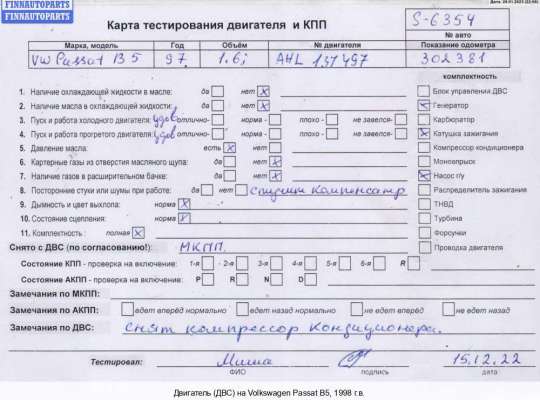 FINNAUTOPARTS
FINNAUTOPARTS
Карта тестирования двигателя и КПП
S-6354
№ авто
Марка, модель Год Объём № двигателя Показание одометра
VW Passat B5 97. 1.6i AHL 131497 302381
комплектность
1. Наличие охлаждающей жидкости в масле: да нет X
Блок управления ДВС
2. Наличие масла в охлаждающей жидкости: да нет X
Генератор
3. Пуск и работа холодного двигателя: удов отлично- норма - плохо - не завелся-
Карбюратор
4. Пуск и работа прогретого двигателя: удов отлично- норма - плохо - не завелся-
Катушка зажигания
5. Давление масла: есть X нет
Компрессор кондиционера
6. Картерные газы из отверстия масляного щупа: да нет X
Моновпрыск
7. Наличие газов в расширительном бачке: да нет X
Насос г/у
8. Посторонние стуки или шумы при работе: да нет
Распределитель зажигания
9. Дымность и цвет выхлопа: норма X
ТНВД
10. Состояние сцепления: норма X
Турбина
11. Комплектность : полная X
Форсунки
Снято с ДВС (по согласованию!): МКПП.
Проводка двигателя
Состояние КПП - проверка на включение: 1-я 2-я 3-я 4-я 5-я 6-я R
Состояние АКПП - проверка на включение: P R N D
Замечания по МКПП:
Замечания по АКПП: едет вперёд нормально едет назад нормально не едет вперёд не едет назад
Замечания по ДВС: Снят компрессор кондиционера.
Тестировал: Миша 15.12.22
ФИО подпись дата
Двигатель (ДВС) на Volkswagen Passat B5, 1998 г.в.